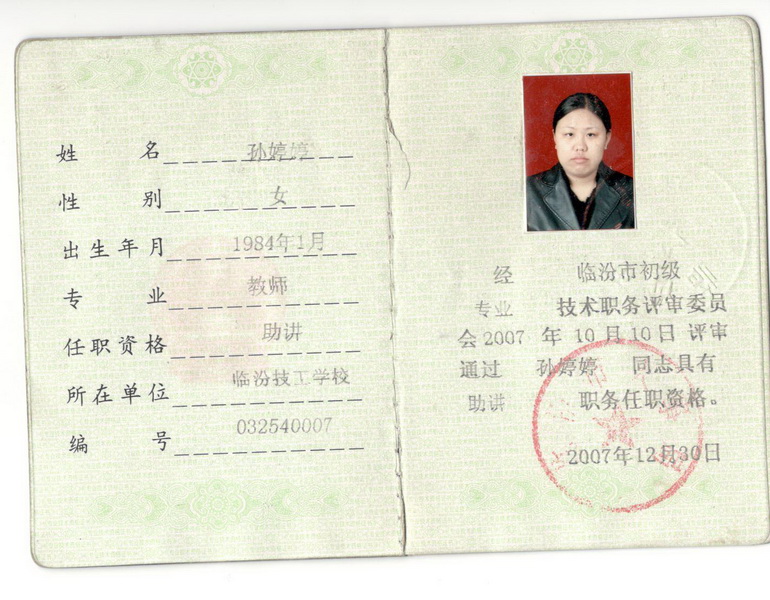 姓名 孙婷婷
性别 女
出生年月 1984年1月
专业 教师
任职资格 助讲
所在单位 临汾技工学校
编号 032540007
经 临汾市初级
专业 技术职务评审委员
会 2007 年 10 月 10 日 评审
通过 孙婷婷 同志具有
助讲 职务任职资格。
2007年12月30日